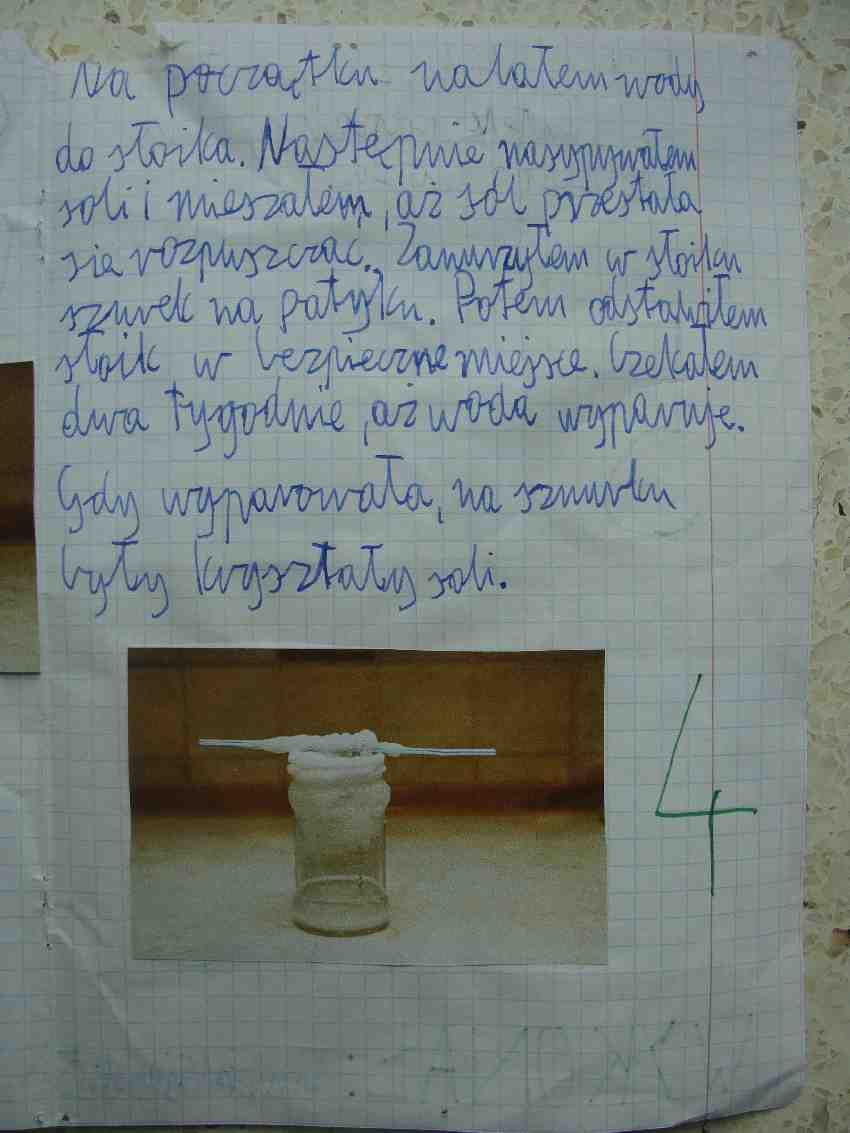 Na początku nalałem wody
do słoika. Następnie nasypywałem
soli i mieszałem, aż sól przestała
się rozpuszczać. Zanurzyłem w słoiku
sznurek na patyku. Potem odstawiłem
słoik w bezpieczne miejsce. Czekałem
dwa tygodnie, aż woda wyparuje.
Gdy wyparowała, na sznurku
były kryształy soli.
4